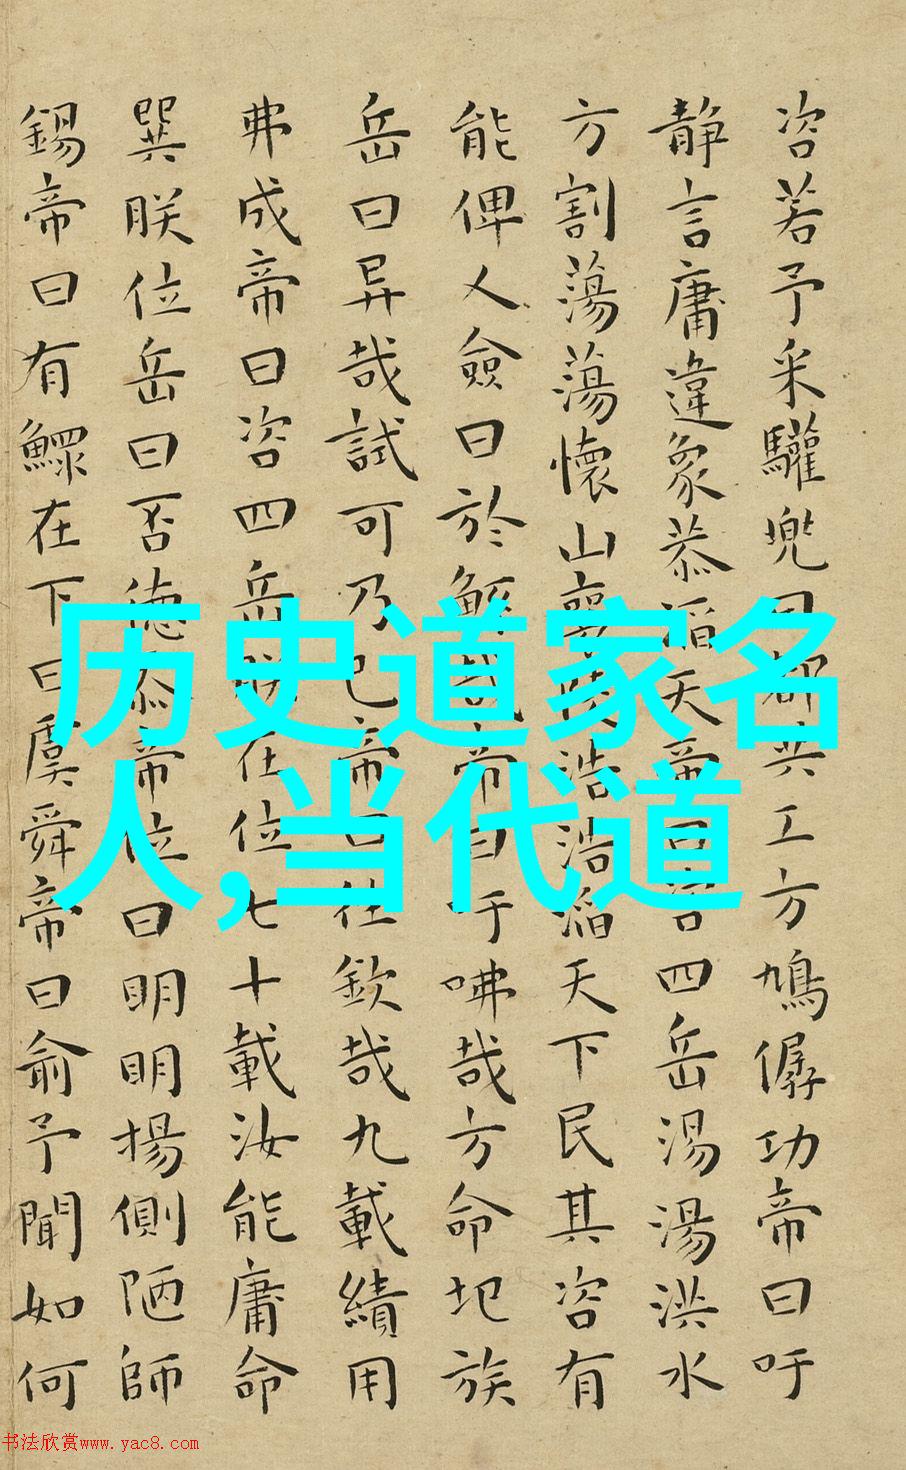 咨若予采驩兜曰都共工方鳩僝功帝曰吁
静言庸違象恭滔天帝曰咨四岳湯湯洪水
方割蕩蕩懷山襄陵浩浩滔天下民其咨有
能俾人僉曰於鯀哉帝曰吁咈哉方命圮族
岳曰异哉試可乃已帝曰往欽哉九載績用
弗成帝曰咨四岳朕在位七十載汝能庸命
巽朕位岳曰否德忝帝位曰明明揚側陋師
錫帝曰有鰥在下曰虞舜帝曰俞予聞如何
历史道家名
人,当代道
书法欣赏www.yac8.com